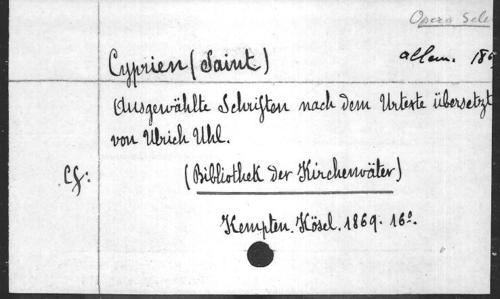 Opera Sele
Cyprien (Saint)
allem. 186
Ausgewählte Schriften nach dem Urtexte übersetzt
von Ulrich Uhl.
Cf:
(Bibliothek der Kirchenväter)
Kempten. Kösel. 1869. 16º.